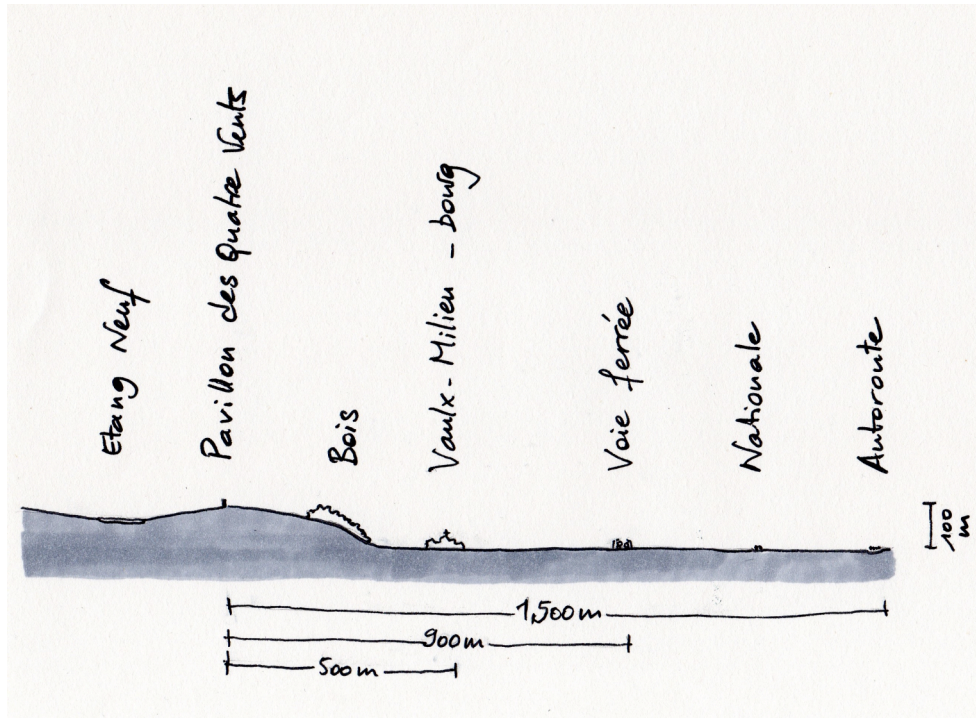 Etang Neuf
Pavillon des Quatre Vents
Bois
Vaulx-Milieu - bourg
Voie ferrée
Nationale
Autoroute
100 m
1,500m
900m
500m